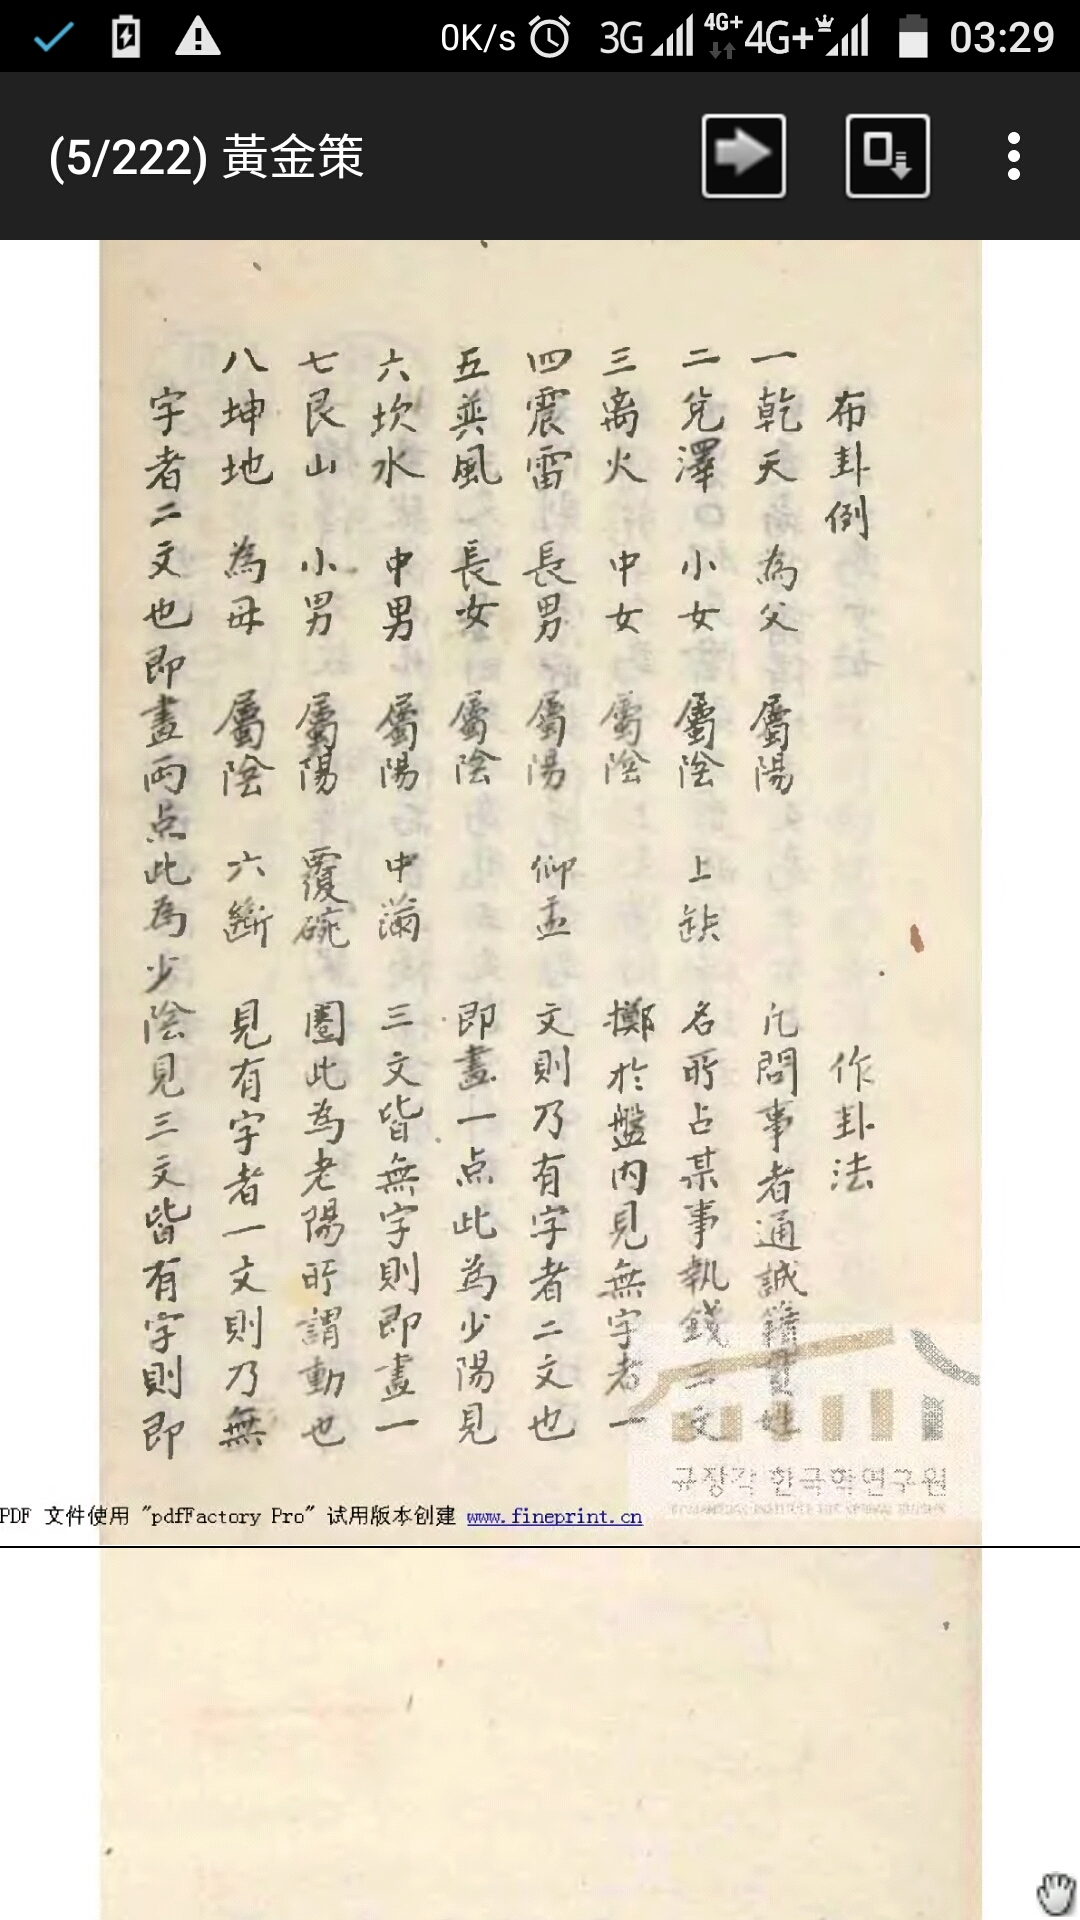 0K/s 3G 4G+ 4G+ 03:29
(5/222) 黃金策
布卦例 作卦法
一乾天 為父 屬陽 凡問事者通誠籍貫姓
二兌澤 小女 屬陰 上缺 名所占某事執錢三文
三离火 中女 屬陰 擲於盤內見無字者一
四震雷 長男 屬陽 仰盂 文則乃有字者二文也
五巽風 長女 屬陰 即畫一点此為少陽見
六坎水 中男 屬陽 中滿 三文皆無字則即畫一
七艮山 小男 屬陽 覆碗 圈此為老陽所謂動也
八坤地 為母 屬陰 六斷 見有字者一文則乃無
字者二文也即畫两点此為少陰見三文皆有字則即
규장각 한국학연구원
PDF 文件使用 "pdfFactory Pro" 试用版本创建 www.fineprint.cn